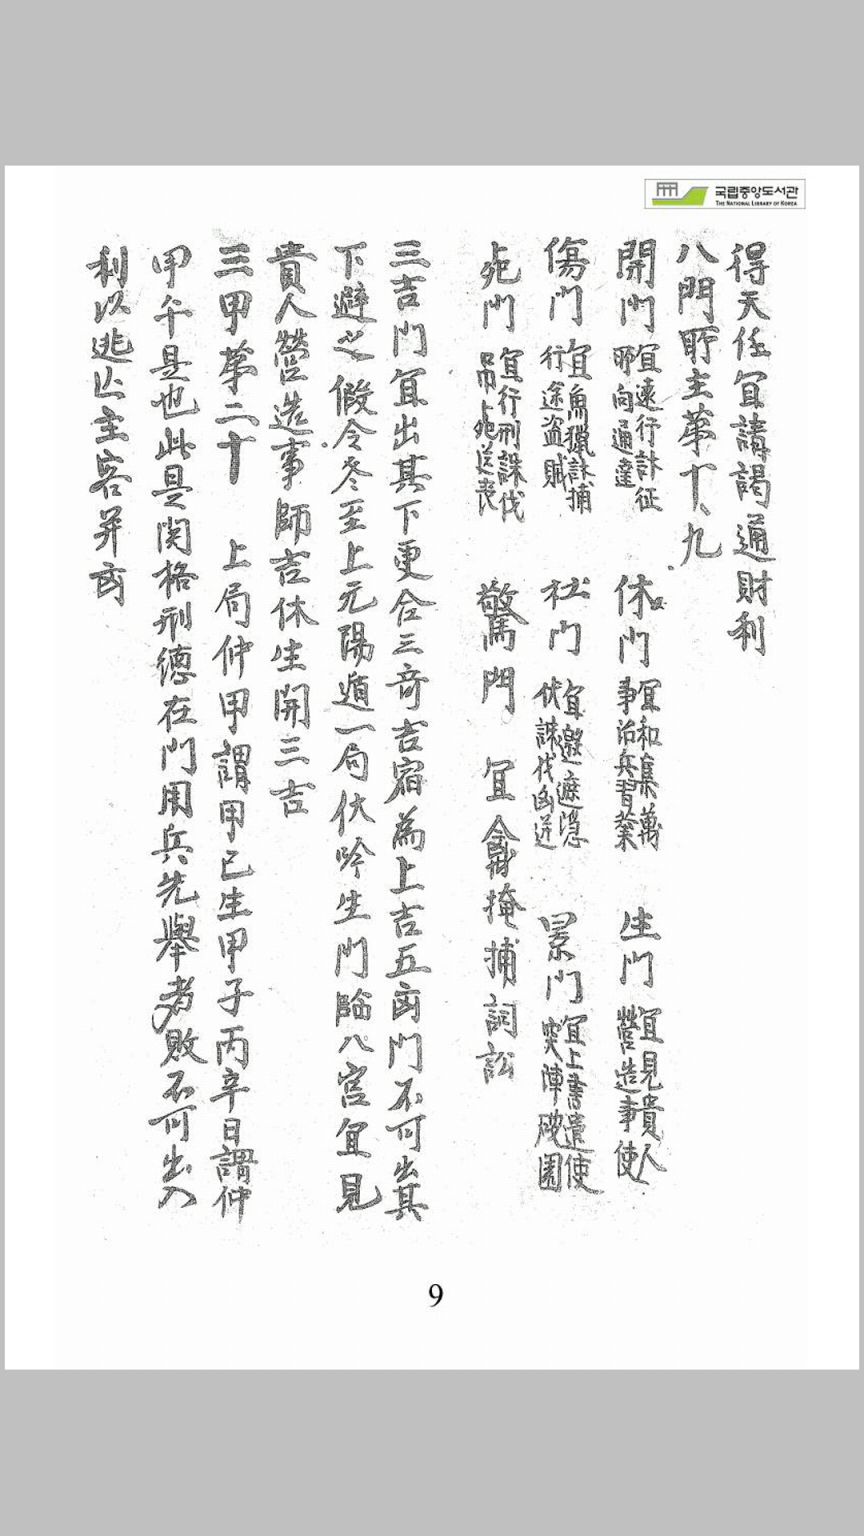 국립중앙도서관
THE NATIONAL LIBRARY OF KOREA
得天任宜請謁通財利
八門所主苐十九
開門 宜遠行計征所向通達 休門 宜和集萬事治兵習業 生門 宜見貴人營造事使
傷門 宜魚獵詠捕行途盗賊 杜門 宜邀遮隠伏誅伐凶逆 景門 宜上書遣使突陣破圍
死門 宜行刑誅伐吊死送喪 驚門 宜 掩捕詞訟
三吉門宜出其下更合三竒吉宿為上吉五凶門不可出其
下避之假令冬至上元陽遁一局伏吟生門臨八宮宜見
貴人營造事師吉休生開三吉
三甲苐二十 上局仲甲謂甲己生甲子丙辛日謂仲
甲午是也此是関格刑德在門用兵先舉者敗不可出入
利以逃亡主客并凶
9